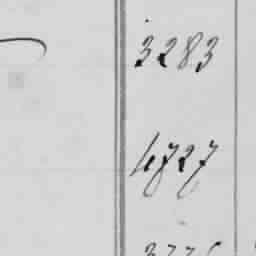 3283
4727